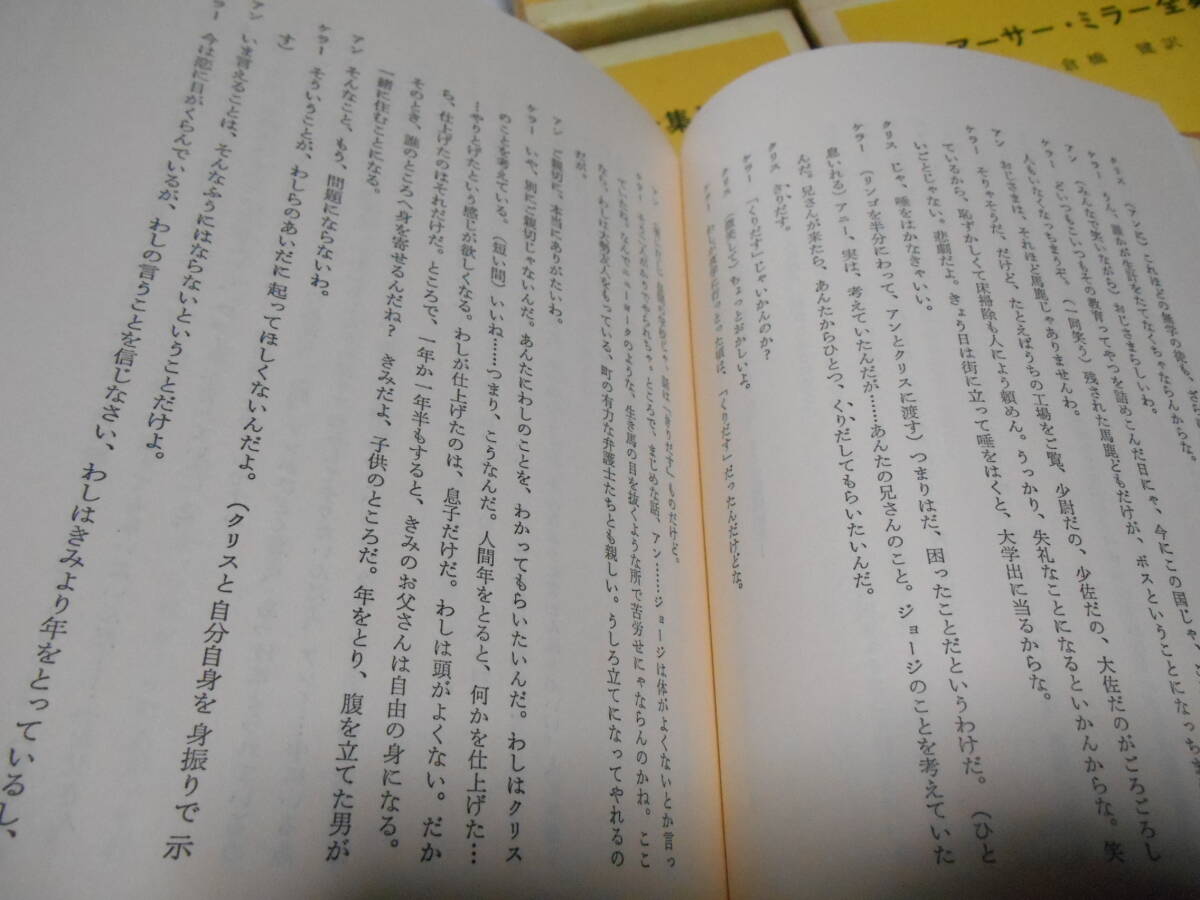 アーサー・ミラー全集
倉橋 健訳
集
クリス (アンに) これほどの無学の徒も、
ケラー うん、誰かが生計をたてなくちゃならんからな。
アン (みんなで笑いながら) おじさまらしいわ。
ケラー どいつもこいつもその教育ってやつを詰めこんだ日にゃ、今にこの国じゃ、
人もいなくなっちまうぞ。(一同笑う) 残された馬鹿どもだけが、ボスということになっち
アン おじさまは、それほど馬鹿じゃありませんわ。
ケラー そりゃそうだ、だけど、たとえばうちの工場をご覧、少尉だの、少佐だの、大佐だのがごろごろし
ているから、恥ずかしくて床掃除も人によう頼めん。うっかり、失礼なことになるといかんからな。笑
いごとじゃない。悲劇だよ。きょう日は街に立って唾をはくと、大学出に当るからな。
クリス じゃ、唾をはかなきゃいい。
ケラー (リンゴを半分にわって、アンとクリスに渡す) つまりはだ、困ったことだというわけだ。(ひと
息いれる) アニー、実は、考えていたんだが……あんたの兄さんのこと。ジョージのことを考えていた
んだ。兄さんが来たら、あんたからひとつ、くりだしてもらいたいんだ。
クリス きりだす。
ケラー 「くりだす」じゃいかんのか?
クリス (微笑して) ちょっとおかしいよ。
ケラー わしが夜学に行っとった頃は、「くりだす」だったんだけどな。
アン
ケラー
ところで、まじめな話、アン……ジョージは体がよくないとか言っ
ていたね。なんでニューヨークのような、生き馬の目を抜くような所で苦労せにゃならんのかね。ここ
なら、わしは大勢友人をもっている、町の有力な弁護士たちとも親しい。うしろ立てになってやれるの
だが。
アン ご親切に、本当にありがたいわ。
ケラー いや、別にご親切じゃないんだ。あんたにわしのことを、わかってもらいたいんだ。わしはクリス
のことを考えている。(短い間) いいね……つまり、こうなんだ。人間年をとると、何かを仕上げた…
…やりとげたという感じが欲しくなる。わしが仕上げたのは、息子だけだ。わしは頭がよくない。だか
ら、仕上げたのはそれだけだ。ところで、一年か一年半もすると、きみのお父さんは自由の身になる。
そのとき、誰のところへ身を寄せるんだね? きみだよ、子供のところだ。年をとり、腹を立てた男が
一緒に住むことになる。
アン そんなこと、もう、問題にならないわ。
ケラー そういうことが、わしらのあいだに起ってほしくないんだよ。(クリスと自分自身を身振りで示
す)
アン いま言えることは、そんなふうにはならないということだけよ。
ラー 今は恋に目がくらんでいるが、わしの言うことを信じなさい、わしはきみより年をとっているし、